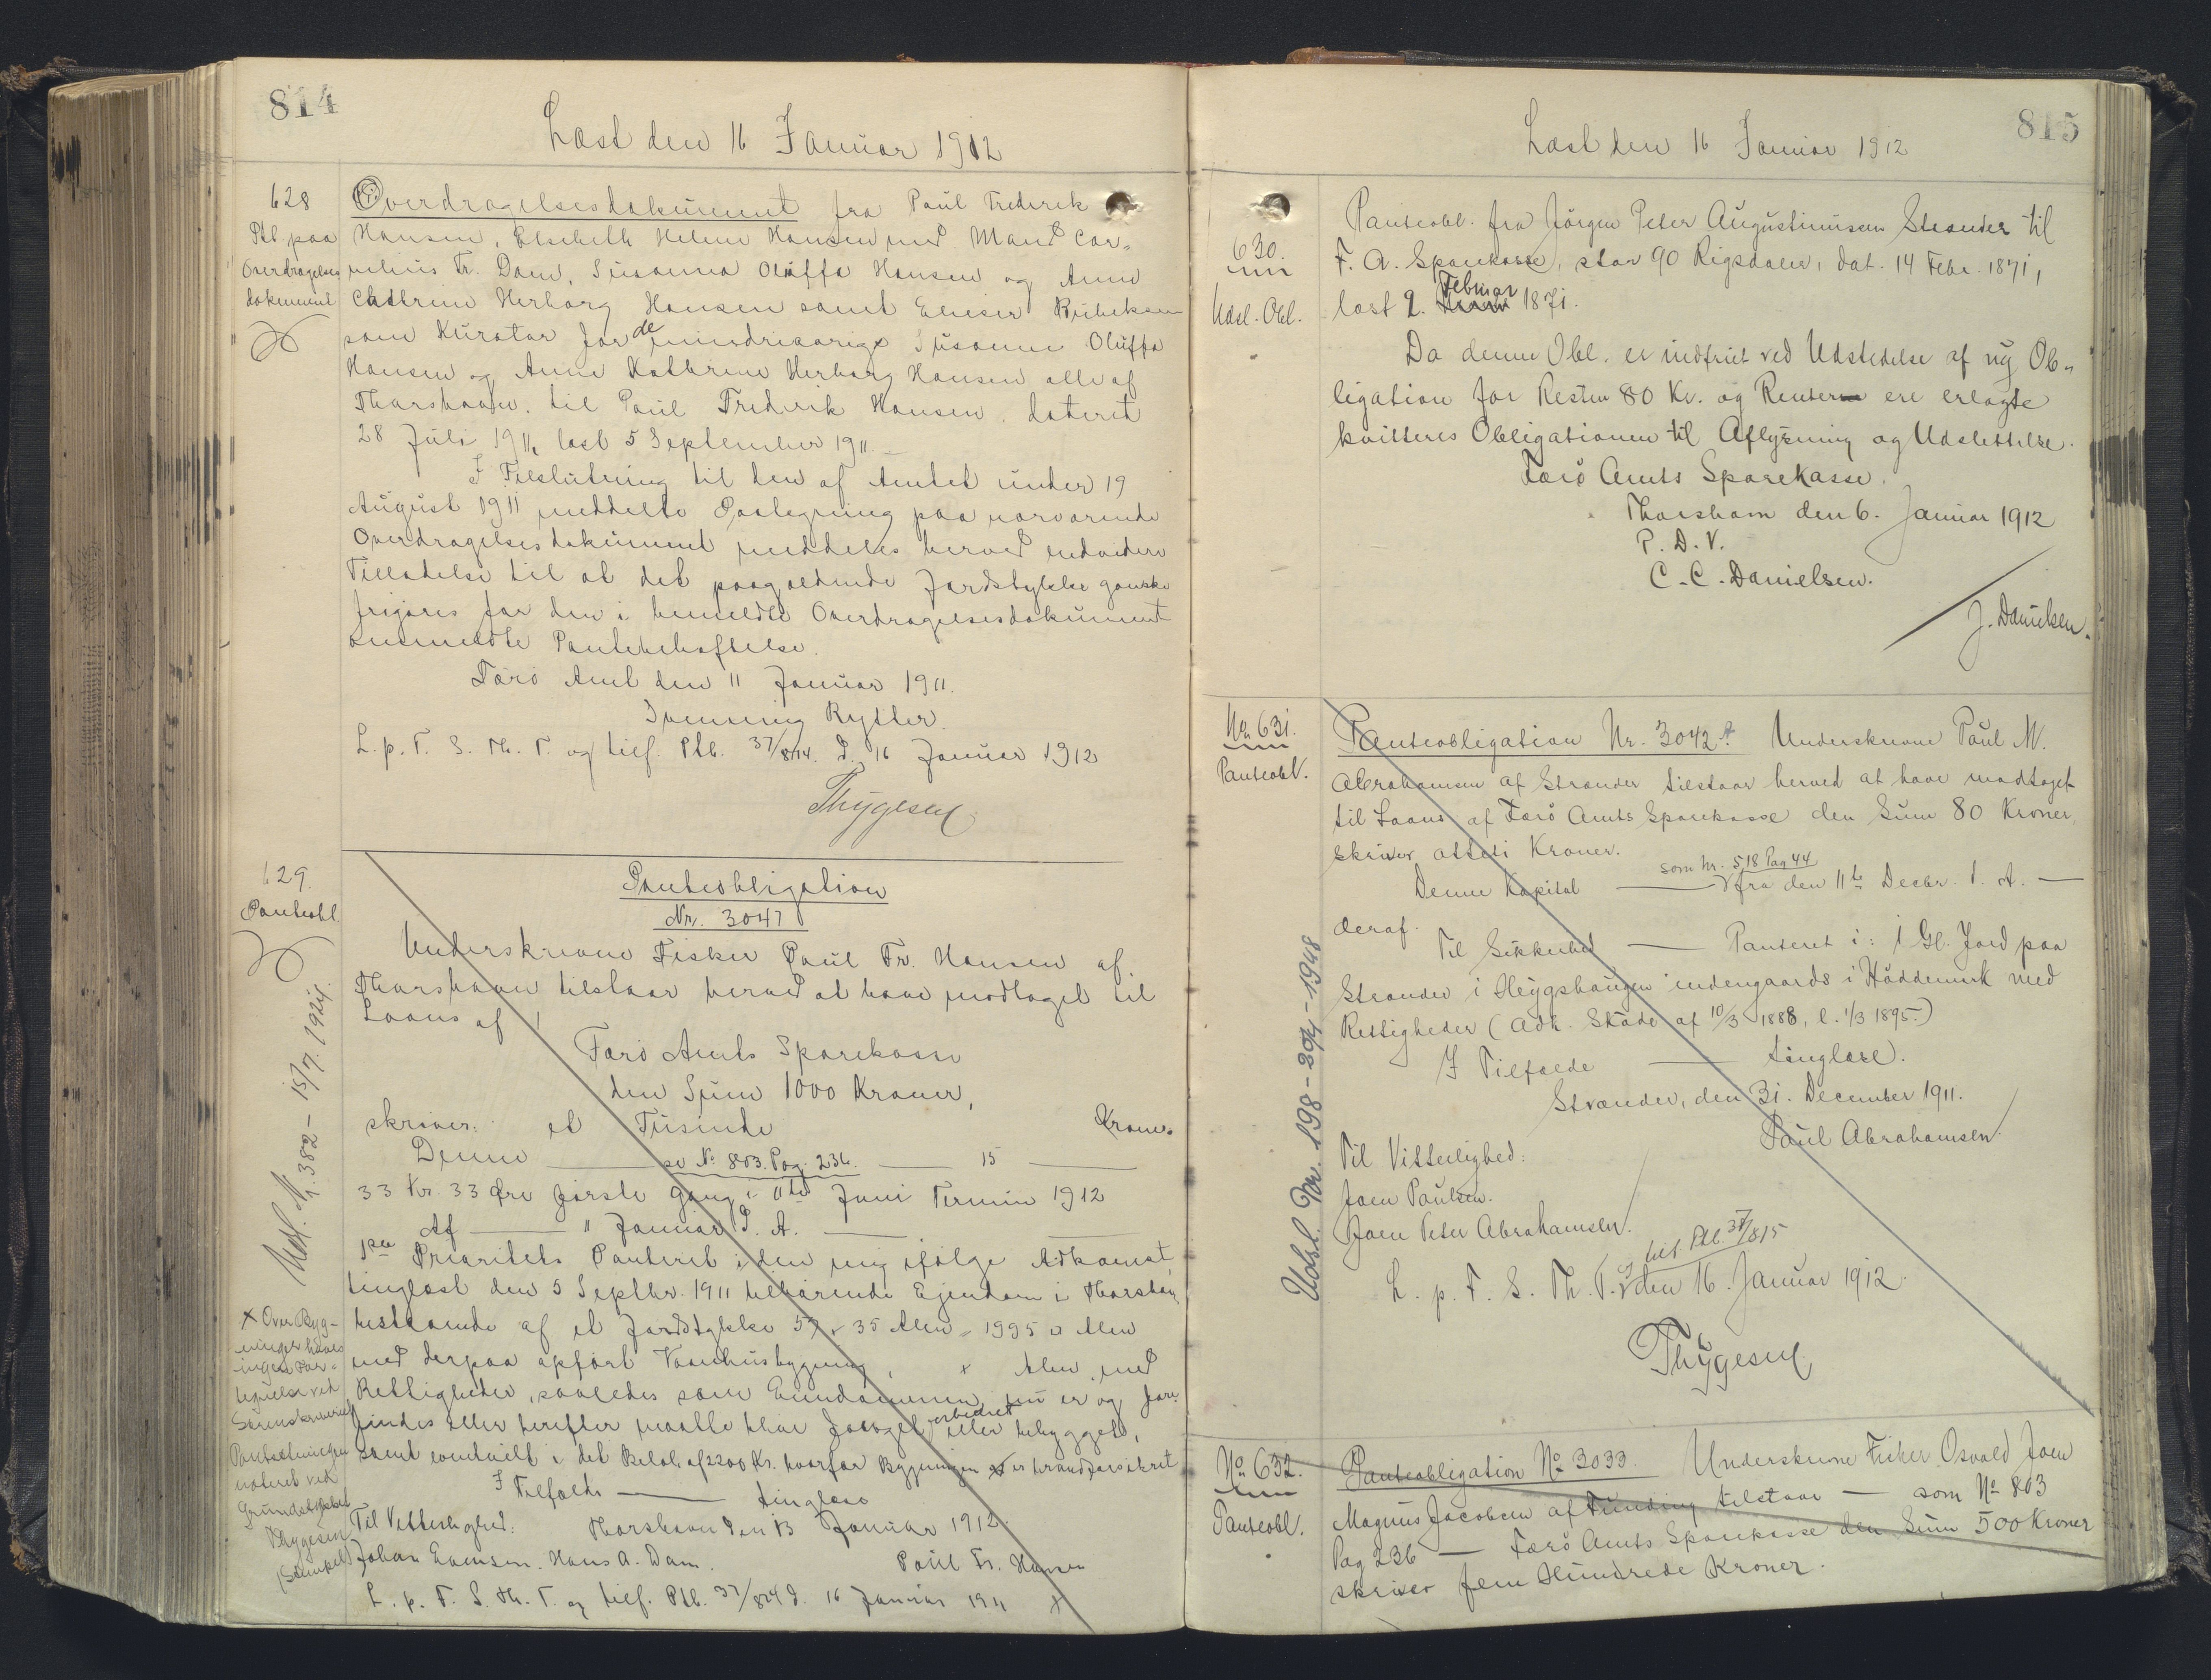 814
Læst den 16 Januar 1912
628
Ptl. paa
Overdragelses
dokument
Overdragelsesdokument fra Paul Frederik
Hansen, Elsebeth Helene Hansen med Mand Cor-
nelius Fr. Dam, Susanna Oluffa Hansen og Anne
Cathrine Herborg Hansen samt Elieser
som Kurator for de mindreaarige Susanne Oluffa
Hansen og Anne Kathrine Herborg Hansen alle af
Thorshavn, til Paul Frederik Hansen, dateret
28 Juli 1911, læst 5 September 1911.
I Tilslutning til den af Amtet under 19
August 1911 meddelte Paategning paa nærværende
Overdragelsesdokument meddeles herved endvidere
Tilladelse til at det paagældende Jordstykke ganske
frigøres for den i bemeldte Overdragelsesdokument
anmeldte Pantebehæftelse.
Færø Amt den 11 Januar 1911.
Rytter
L. p. F. S. Th. T. og tilf. Ptb. 37/814. D. 16 Januar 1912
Thygesen
629.
Panteobl.
Pantobligation
Nr. 3047
Underskrevne Fisker Paul Fr. Hansen af
Thorshavn tilstaar herved at have modtaget til
Laans af
Færø Amts Sparekasse
den Sum 1000 Kroner,
skriver: et Tusinde Kroner
Denne — se No 803. Pag. 236. — 15 —
33 Kr. 33 Øre første Gang i 11te Juni Termin 1912
Af — 11 Januar D. A. —
1ste Prioritets Panteret i den mig ifølge Adkomst,
tinglæst den 5 Septbr. 1911 tilhørende Ejendom i Thorshavn,
bestaaende af et Jordstykke 57 x 35 Alen = 1995 □ Alen
med derpaa opført Vaanhusbygning, x Alen med
Rettigheder, saaledes som Eiendommen nu er og fore-
findes eller herefter maatte blive forøget forbedret eller bebygget,
samt eventuelt i det Beløb af 2200 Kr. hvorfor Bygningen er brandforsikret
I Tilfælde — tinglæse
Thorshavn den 13 Januar 1912.
Til Vitterlighed:
Johan Evensen. Hans A. Dam. Paul Fr. Hansen
L. p. F. S. Th. T. og tilf. Ptb. 37/814 d. 16 Januar 1911
Udsl. Nr. 382 - 15/7. 1924.
x Over Byg-
ninger haves
ingen For-
tegnelse ved
Sorenskriveriet
Pantsætningen
noteret ved
Grundstykket
Thygesen
(Stempel)
815
Læst den 16 Januar 1912
630.
Udsl. Obl.
Panteobl. fra Jörgen Peter Augustinussen Strender til
F. A. Sparekasse, stor 90 Rigsdaler, dat. 14 Febr. 1871,
læst 2. Februar 1871.
Da denne Obl. er indfriet ved Udstedelse af ny Ob-
ligation for Resten 80 Kr. og Renterne ere erlagte
kvitteres Obligationen til Aflysning og Udslettelse.
Færö Amts Sparekasse.
Thorshavn den 6. Januar 1912
P. D. V.
C. C. Danielsen.
J. Danielsen.
No 631.
Panteobl.
Panteobligation Nr. 3042 A. Underskrevne Paul M.
Abrahamsen af Strænder tilstaar herved at have modtaget
til Laans af Færö Amts Sparekasse den Sum 80 Kroner,
skriver otteti Kroner.
Denne Kapital — som Nr. 518 Pag 44 fra den 11te Decbr. d. A. —
deraf.
Til Sikkerhed — Panteret i: 1 Gl. Jord paa
Strænder i Heygshaugen indengaards i Höddemerk med
Rettigheder (Adk. Sköde af 10/3 1888, l. 1/3 1895.)
I Tilfælde — tinglæse.
Strænder, den 31. December 1911.
Paul Abrahamsen.
Til Vitterlighed:
Joen Paulsen.
Joen Peter Abrahamsen.
L. p. F. S. Th. T. og tilf. Ptb. 37/815 den 16. Januar 1912.
Thygesen
Udsl. Nr. 198 - 30/4 - 1948
No 632.
Panteobl.
Panteobligation No 3033. Underskrevne Fisker Osvald Joen
Magnus Jacobsen af Funding tilstaar — som No 803
Pag 236 — Færö Amts Sparekasse den Sum 500 Kroner
skriver fem Hundrede Kroner.